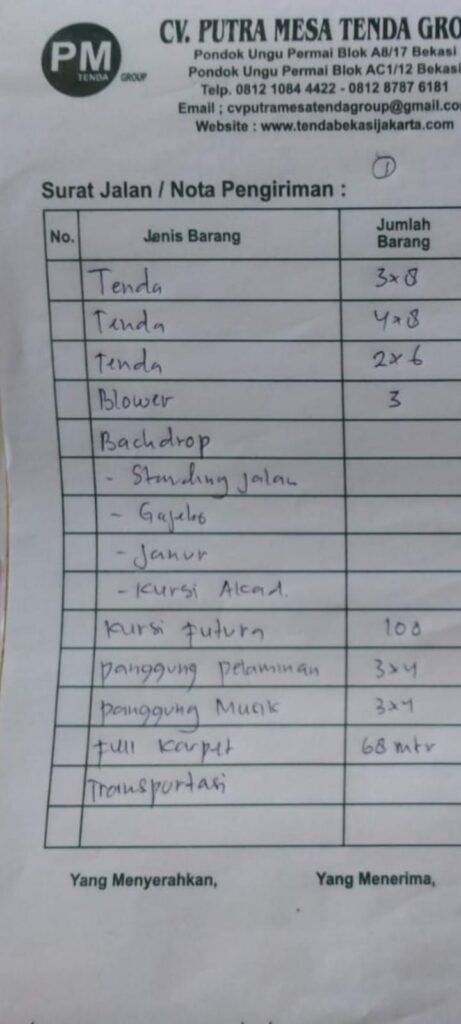 PM
TENDA GROUP
CV. PUTRA MESA TENDA GRO
Pondok Ungu Permai Blok A8/17 Bekasi
Pondok Ungu Permai Blok AC1/12 Bekasi
Telp. 0812 1084 4422 - 0812 8787 6181
Email ; cvputramesatendagroup@gmail.co
Website : www.tendabekasijakarta.com
1
Surat Jalan / Nota Pengiriman :
No. Jenis Barang Jumlah Barang
Tenda 3x8
Tenda 4x8
Tenda 2x6
Blower 3
Backdrop
- Standing jalan
- Gajebo
- Janur
- Kursi Akad.
Kursi Futura 100
panggung pelaminan 3x4
panggung Musik 3x4
full karpet 68 mtr
Transportasi
Yang Menyerahkan, Yang Menerima,